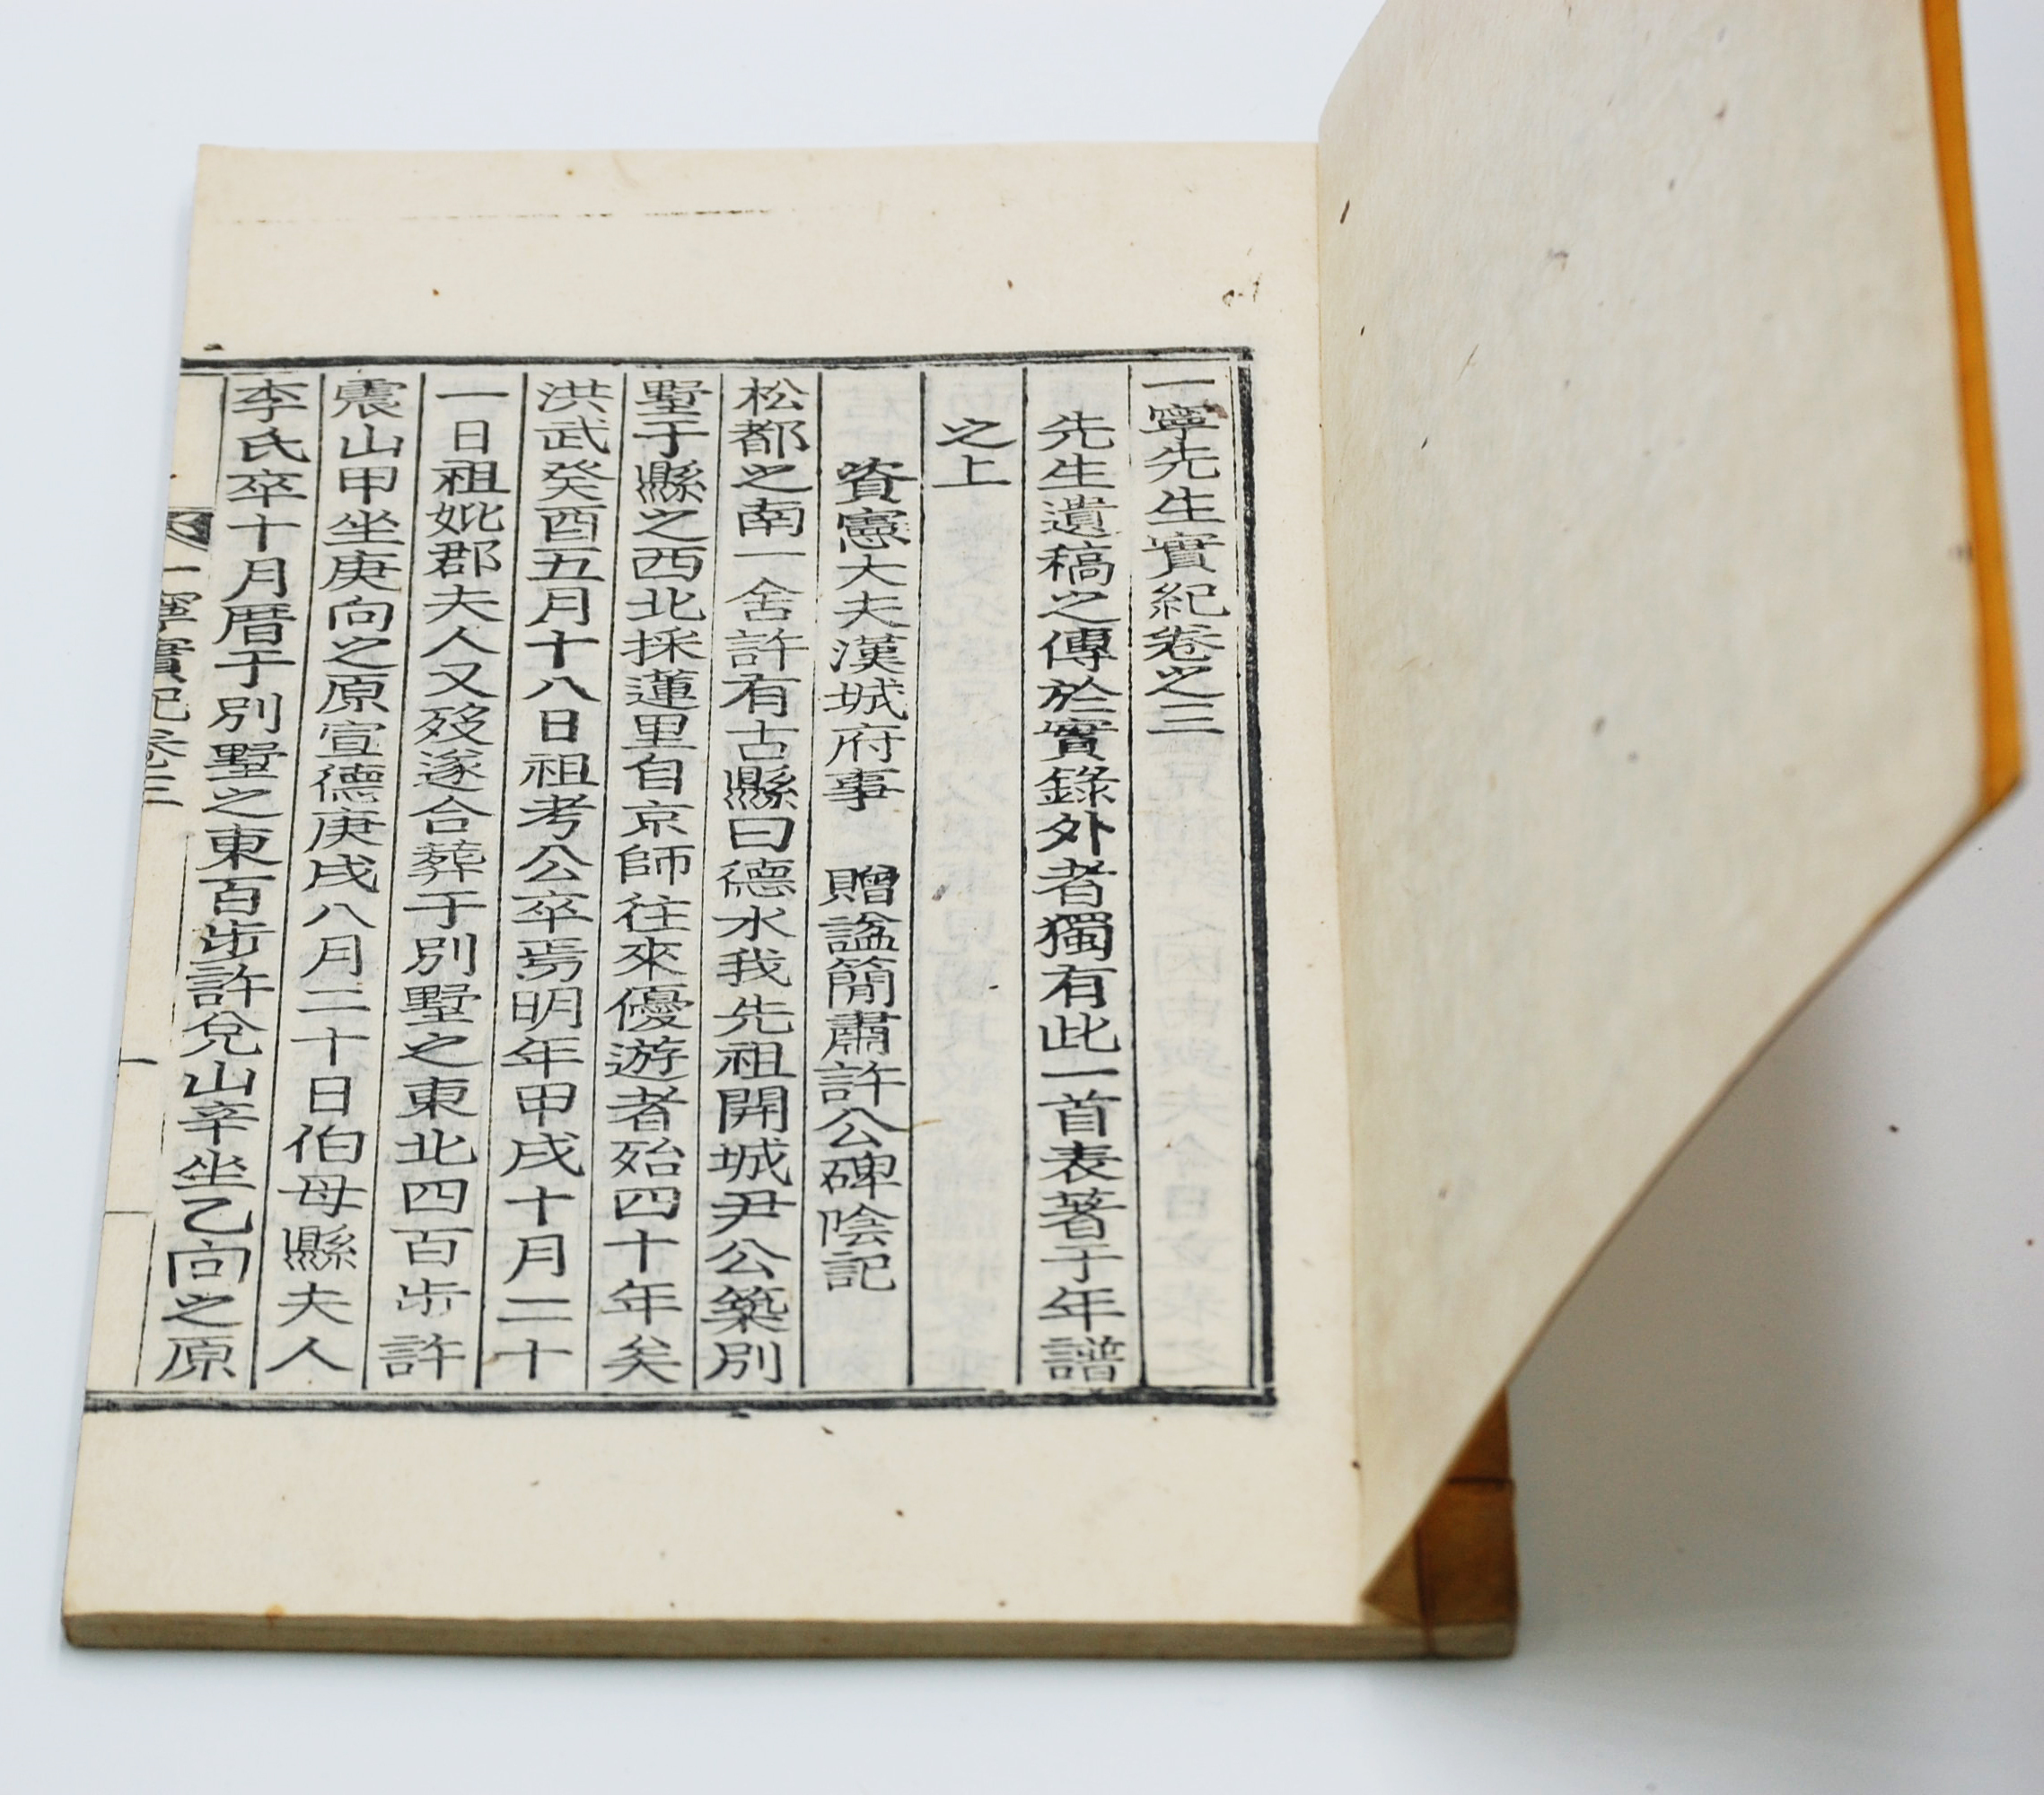 一寧先生實紀卷之三
先生遺稿之傳於實錄外者獨有此一首表著于年譜
之上
資憲大夫漢城府事 贈諡簡肅許公碑陰記
松都之南一舍許有古縣曰德水我先祖開城尹公築別
墅于縣之西北採蓮里自京師往來優遊者殆四十年矣
洪武癸酉五月十八日祖考公卒焉明年甲戌十月二十
一日祖妣郡夫人又歿遂合葬于別墅之東北四百步許
震山甲坐庚向之原宣德庚戌八月二十日伯母縣夫人
李氏卒十月厝于別墅之東百步許兌山辛坐乙向之原
一寧實紀卷三 一